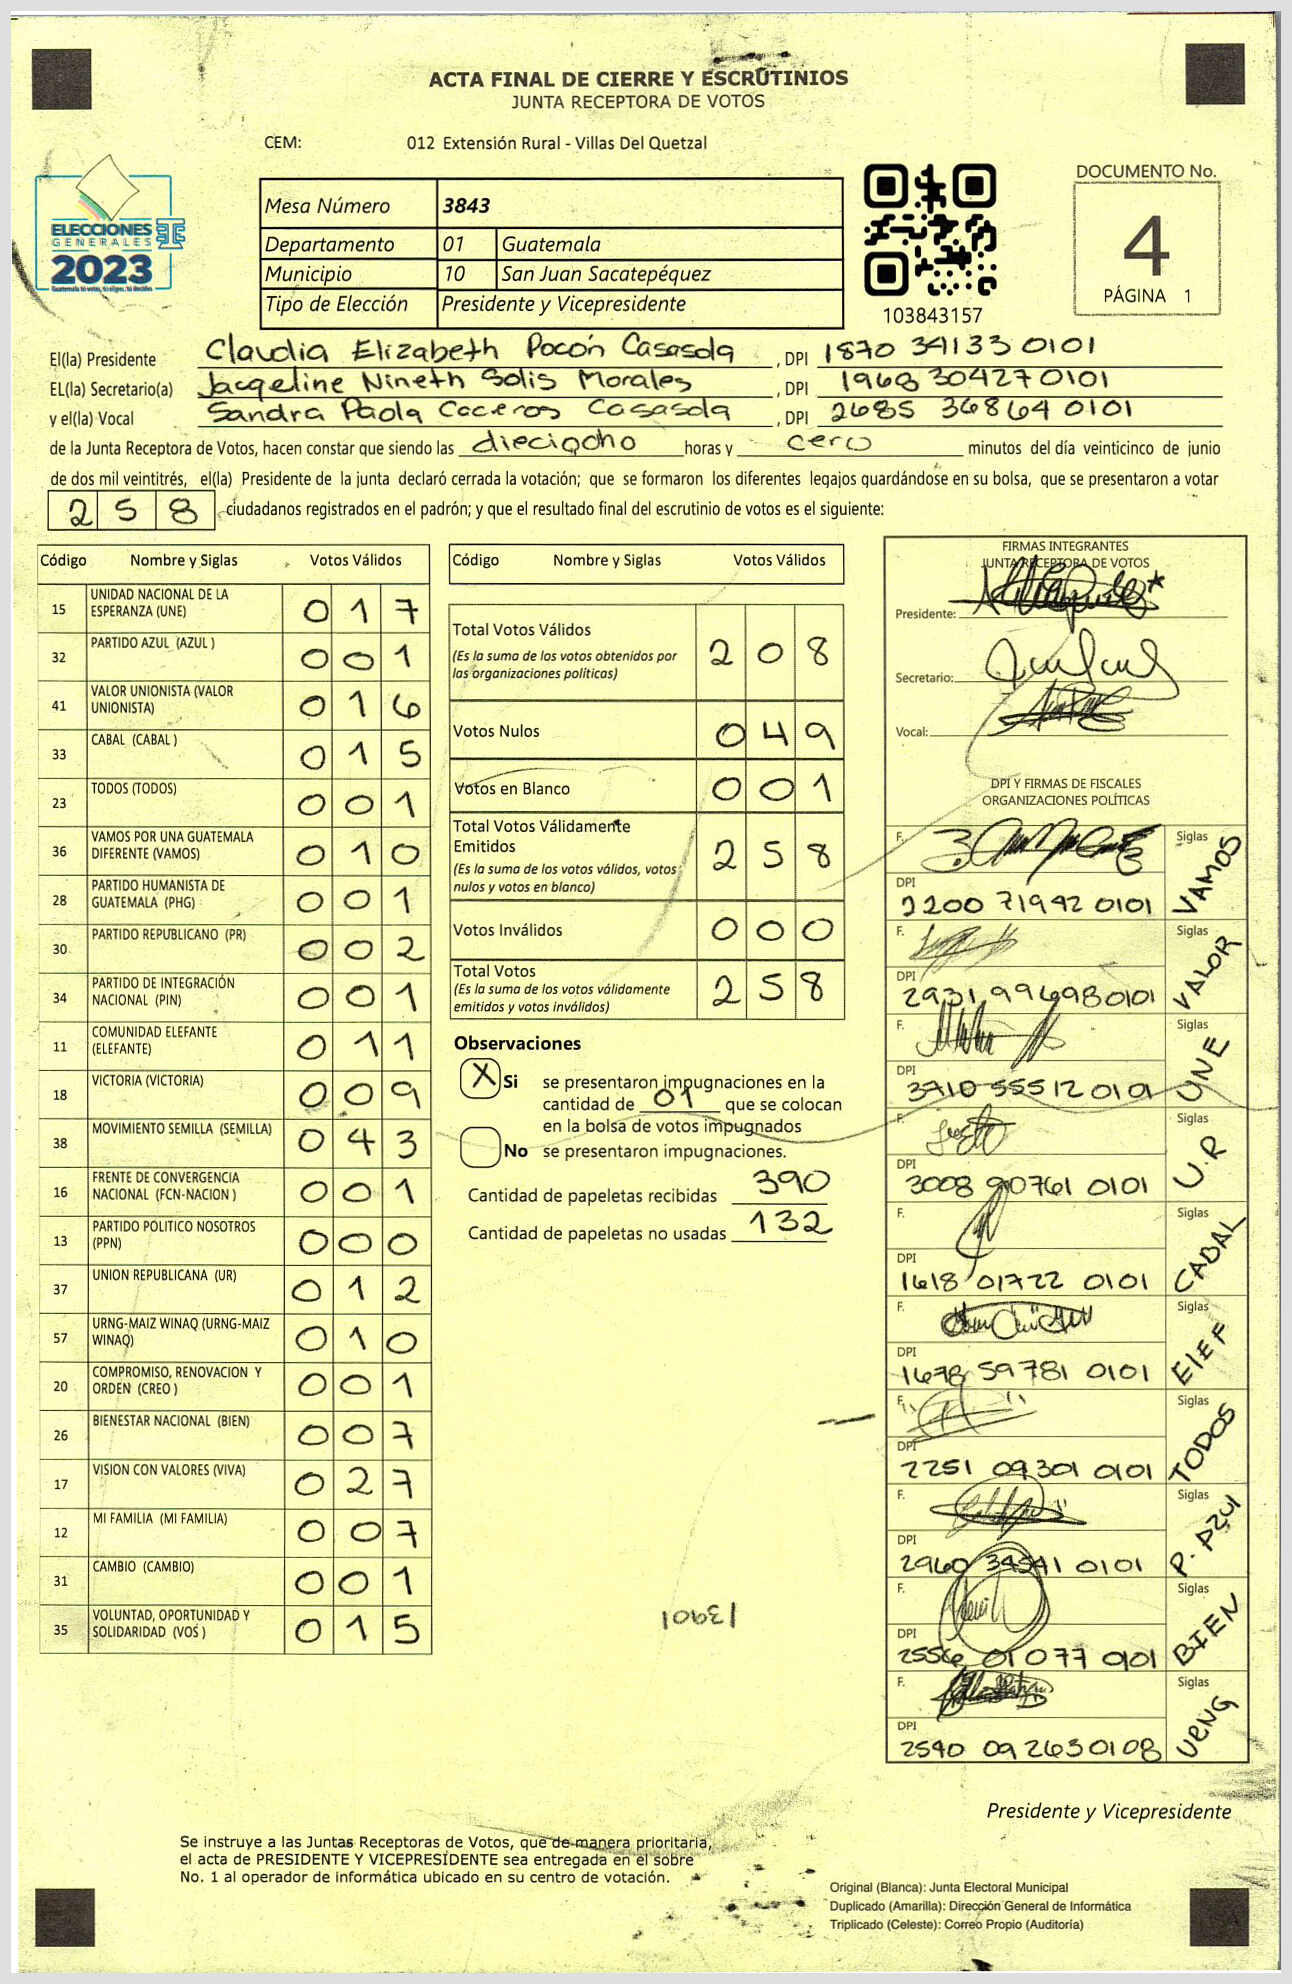 ACTA FINAL DE CIERRE Y ESCRUTINIOS
JUNTA RECEPTORA DE VOTOS
CEM: 012 Extensión Rural - Villas Del Quetzal
ELECCIONES
GENERALES
2023
Mesa Número 3843
Departamento 01 Guatemala
Municipio 10 San Juan Sacatepéquez
Tipo de Elección Presidente y Vicepresidente
103843157
DOCUMENTO No.
4
PÁGINA 1
El(la) Presidente Claudia Elizabeth Pocón Casasola , DPI 1870 34133 0101
EL(la) Secretario(a) Jacqeline Nineth Solis Morales , DPI 1968 30427 0101
y el(la) Vocal Sandra Paola Caceros Casasola , DPI 2685 36864 0101
de la Junta Receptora de Votos, hacen constar que siendo las dieciocho horas y cero minutos del día veinticinco de junio
de dos mil veintitrés, el(la) Presidente de la junta declaró cerrada la votación; que se formaron los diferentes legajos guardándose en su bolsa, que se presentaron a votar
258 ciudadanos registrados en el padrón; y que el resultado final del escrutinio de votos es el siguiente:
Código Nombre y Siglas Votos Válidos
15 UNIDAD NACIONAL DE LA ESPERANZA (UNE) 017
32 PARTIDO AZUL (AZUL ) 001
41 VALOR UNIONISTA (VALOR UNIONISTA) 016
33 CABAL (CABAL ) 015
23 TODOS (TODOS) 001
36 VAMOS POR UNA GUATEMALA DIFERENTE (VAMOS) 010
28 PARTIDO HUMANISTA DE GUATEMALA (PHG) 001
30 PARTIDO REPUBLICANO (PR) 002
34 PARTIDO DE INTEGRACIÓN NACIONAL (PIN) 001
11 COMUNIDAD ELEFANTE (ELEFANTE) 011
18 VICTORIA (VICTORIA) 009
38 MOVIMIENTO SEMILLA (SEMILLA) 043
16 FRENTE DE CONVERGENCIA NACIONAL (FCN-NACION ) 001
13 PARTIDO POLITICO NOSOTROS (PPN) 000
37 UNION REPUBLICANA (UR) 012
57 URNG-MAIZ WINAQ (URNG-MAIZ WINAQ) 010
20 COMPROMISO, RENOVACION Y ORDEN (CREO ) 001
26 BIENESTAR NACIONAL (BIEN) 007
17 VISION CON VALORES (VIVA) 027
12 MI FAMILIA (MI FAMILIA) 007
31 CAMBIO (CAMBIO) 001
35 VOLUNTAD, OPORTUNIDAD Y SOLIDARIDAD (VOS ) 015
Código Nombre y Siglas Votos Válidos
Total Votos Válidos 208
(Es la suma de los votos obtenidos por
las organizaciones políticas)
Votos Nulos 049
Votos en Blanco 001
Total Votos Válidamente
Emitidos 258
(Es la suma de los votos válidos, votos
nulos y votos en blanco)
Votos Inválidos 000
Total Votos 258
(Es la suma de los votos válidamente
emitidos y votos inválidos)
Observaciones
X Si se presentaron impugnaciones en la
cantidad de 01 que se colocan
en la bolsa de votos impugnados
No se presentaron impugnaciones.
Cantidad de papeletas recibidas 390
Cantidad de papeletas no usadas 132
13901
FIRMAS INTEGRANTES
JUNTA RECEPTORA DE VOTOS
Presidente:
Secretario:
Vocal:
DPI Y FIRMAS DE FISCALES
ORGANIZACIONES POLÍTICAS
F. Siglas VAMOS
DPI 2200 71942 0101
F. Siglas VALOR
DPI 2931 99698 0101
F. Siglas UNE
DPI 3710 55512 0101
F. Siglas U.R
DPI 3008 90761 0101
F. Siglas CABAL
DPI 1618 01722 0101
F. Siglas ElEF
DPI 1678 59781 0101
F. Siglas TODOS
DPI 2251 09301 0101
F. Siglas P. AZUl
DPI 2960 34541 0101
F. Siglas BIEN
DPI 2556 01077 0101
F. Siglas URNG
DPI 2590 09263 0108
Presidente y Vicepresidente
Se instruye a las Juntas Receptoras de Votos, que de manera prioritaria,
el acta de PRESIDENTE Y VICEPRESIDENTE sea entregada en el sobre
No. 1 al operador de informática ubicado en su centro de votación.
Original (Blanca): Junta Electoral Municipal
Duplicado (Amarilla): Dirección General de Informática
Triplicado (Celeste): Correo Propio (Auditoría)